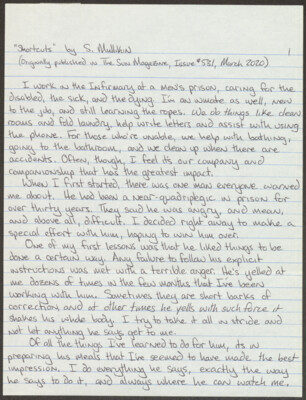 "Shortcuts" by S. Mullikin
1
(Originally published in The Sun Magazine, Issue #531, March 2020)
I work in the Infirmary at a men's prison, caring for the
disabled, the sick, and the dying. I'm an inmate as well, new
to the job, and still learning the ropes. We do things like clean
rooms and fold laundry, help write letters and assist with using
the phone. For those who're unable, we help with bathing,
going to the bathroom, and we clean up when there are
accidents. Often, though, I feel its our company and
companionship that has the greatest impact.
When I first started, there was one man everyone warned
me about. He had been a near-quadriplegic in prison for
over thirty years. They said he was angry, and mean,
and above all, difficult. I decided right away to make a
special effort with him, hoping to win him over.
One of my first lessons was that he liked things to be
done a certain way. Any failure to follow his explicit
instructions was met with a terrible anger. He's yelled at
me dozens of times in the few months that I've been
working with him. Sometimes they are short barks of
correction and at other times he yells with such force it
shakes his whole body. I try to take it all in stride and
not let anything he says get to me.
Of all the things I've learned to do for him, its in
preparing his meals that I've seemed to have made the best
impression. I do everything he says, exactly the way
he says to do it, and always where he can watch me.